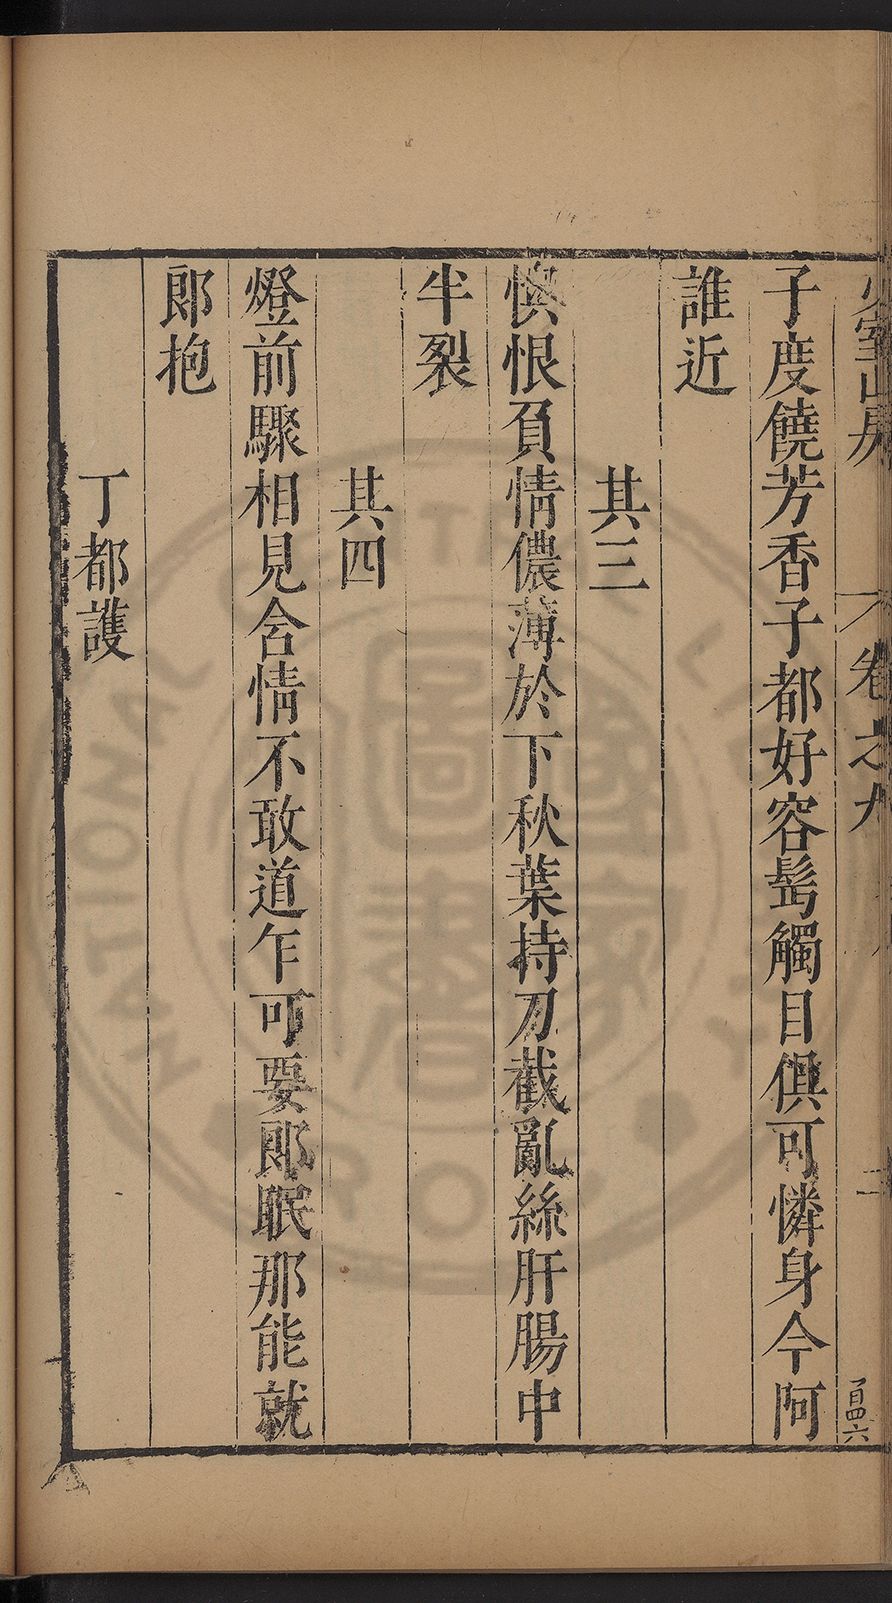 少室山房 卷之九 二 百四六
子度饒芳香子都好容髩觸目俱可憐身今阿
誰近
其三
懊恨負情儂薄於下秋葉持刀截亂絲肝腸中
半裂
其四
燈前驟相見含情不敢道乍可要郎眠那能就
郎抱
丁都護